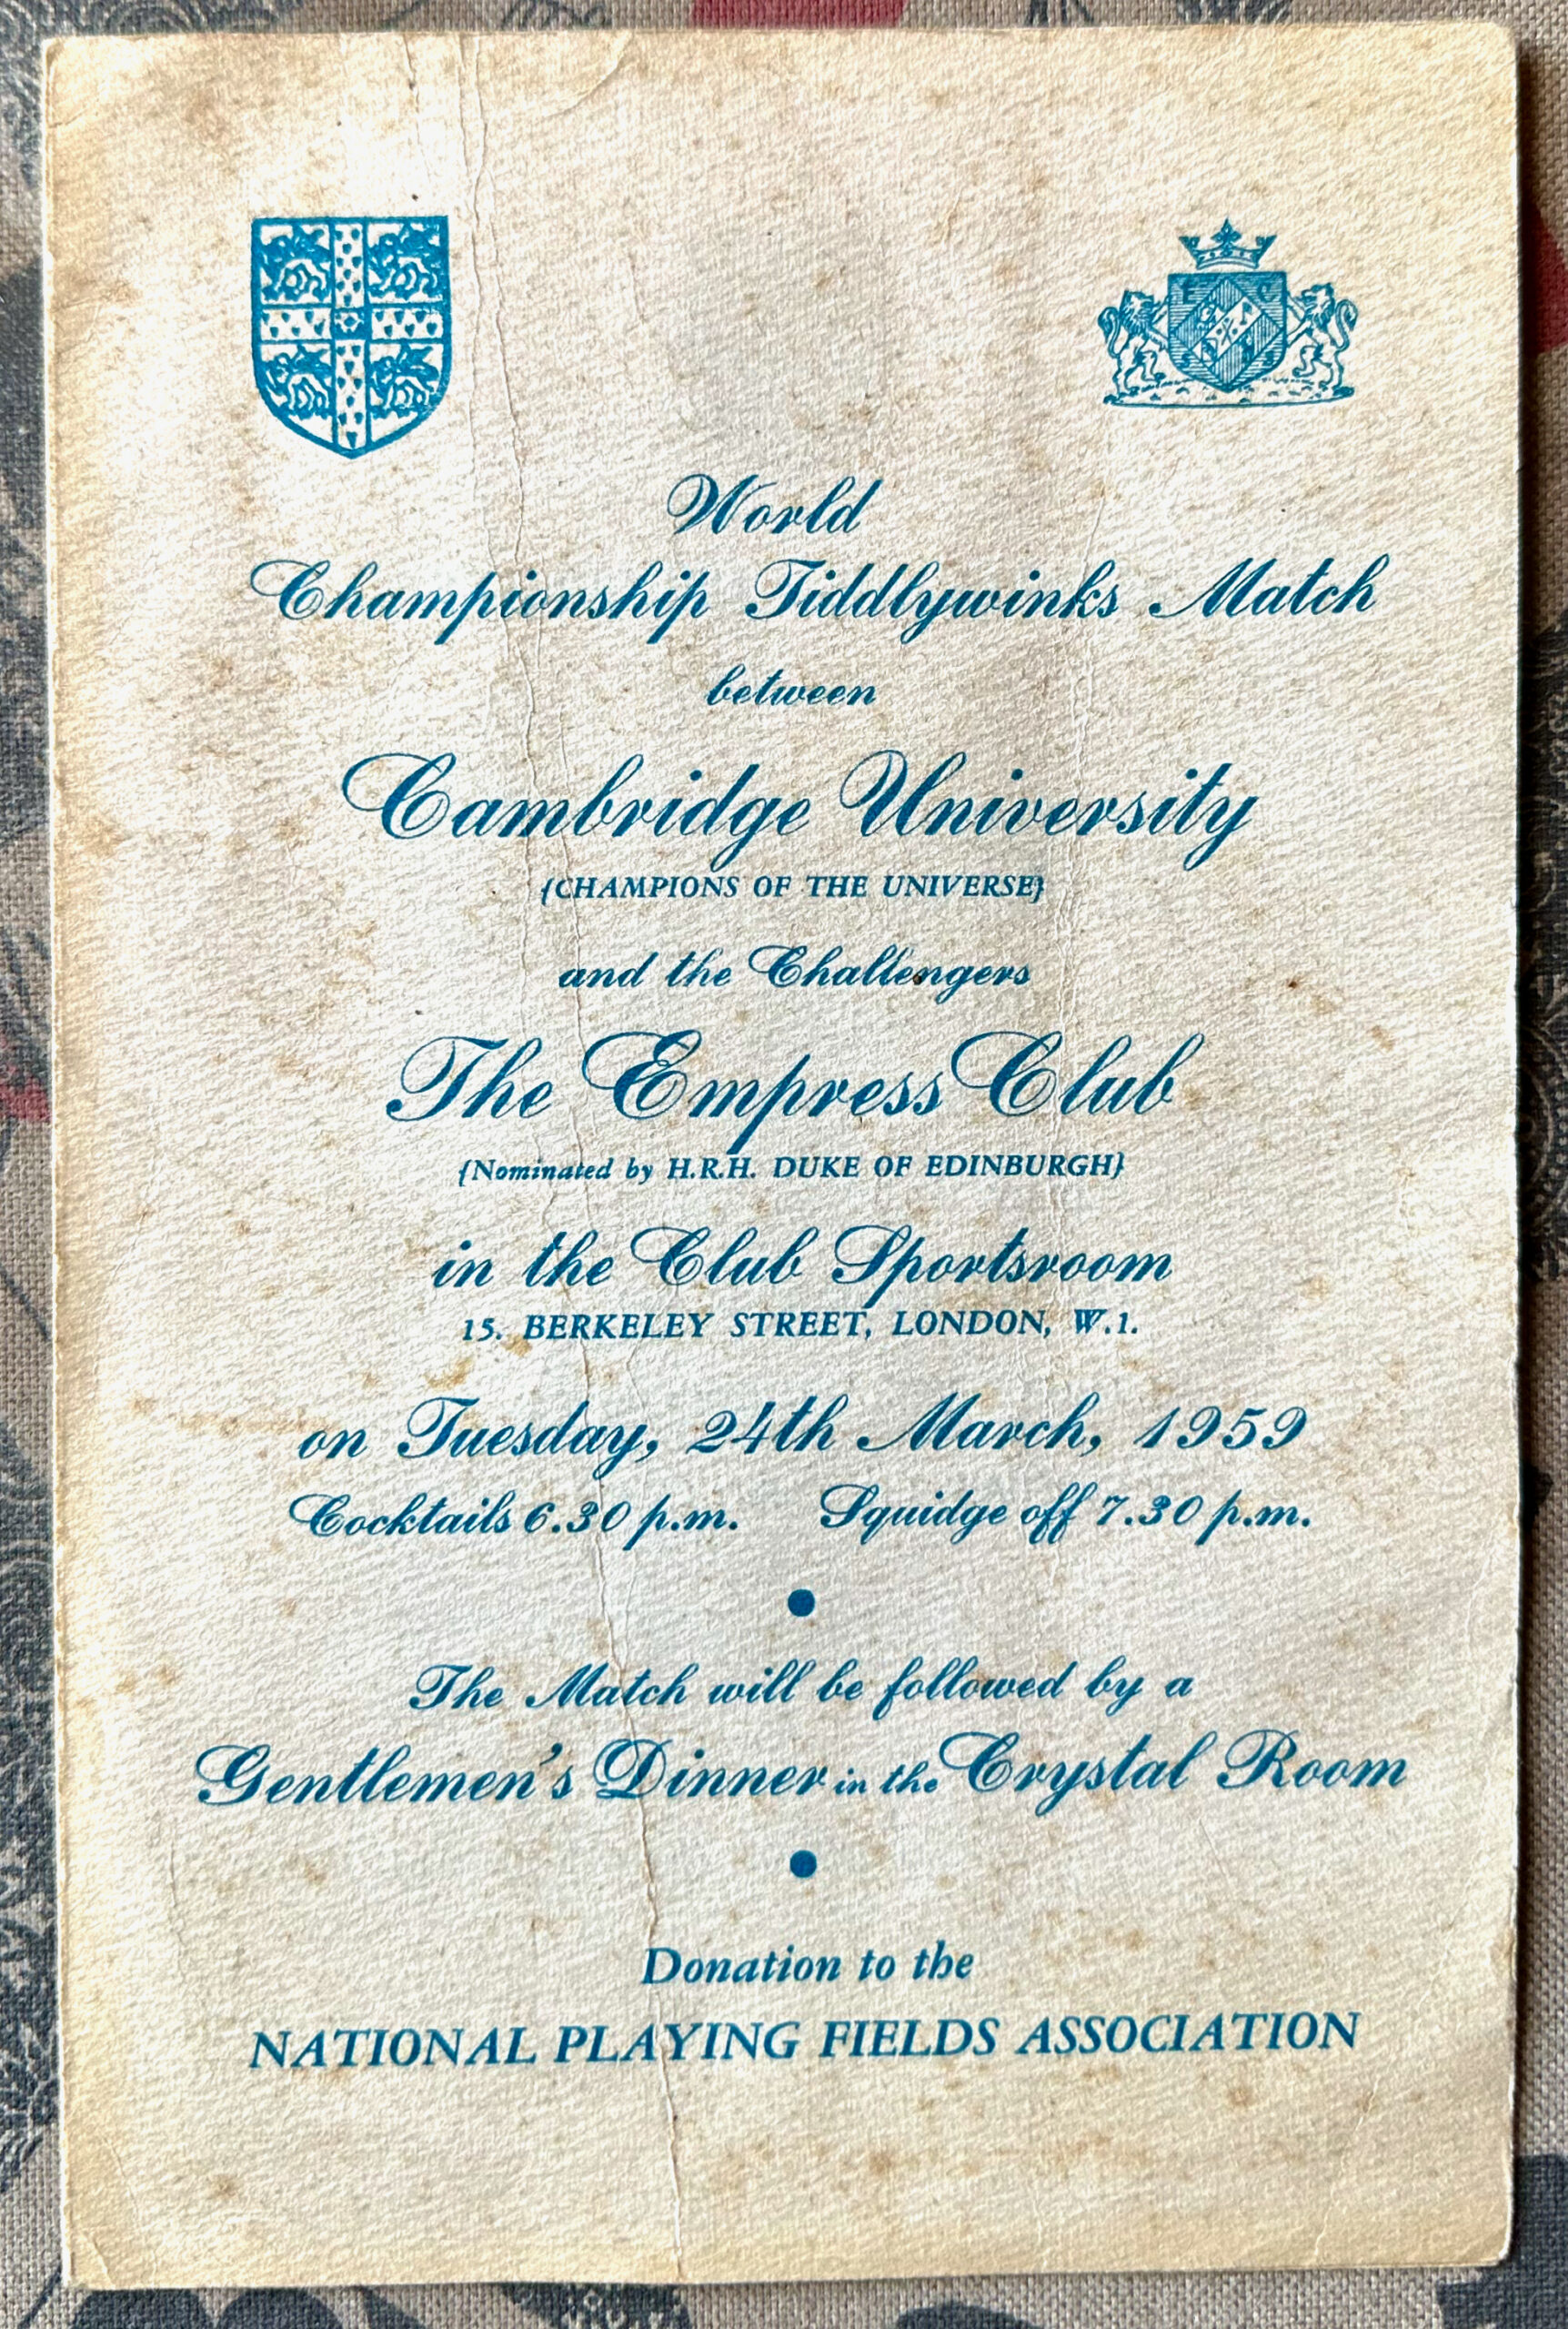 World
Championship Tiddlywinks Match
between
Cambridge University
{CHAMPIONS OF THE UNIVERSE}
and the Challengers
The Empress Club
{Nominated by H.R.H. DUKE OF EDINBURGH}
in the Club Sportsroom
15. BERKELEY STREET, LONDON, W.1.
on Tuesday, 24th March, 1959
Cocktails 6.30 p.m. Squidge off 7.30 p.m.
The Match will be followed by a
Gentlemen's Dinner in the Crystal Room
Donation to the
NATIONAL PLAYING FIELDS ASSOCIATION